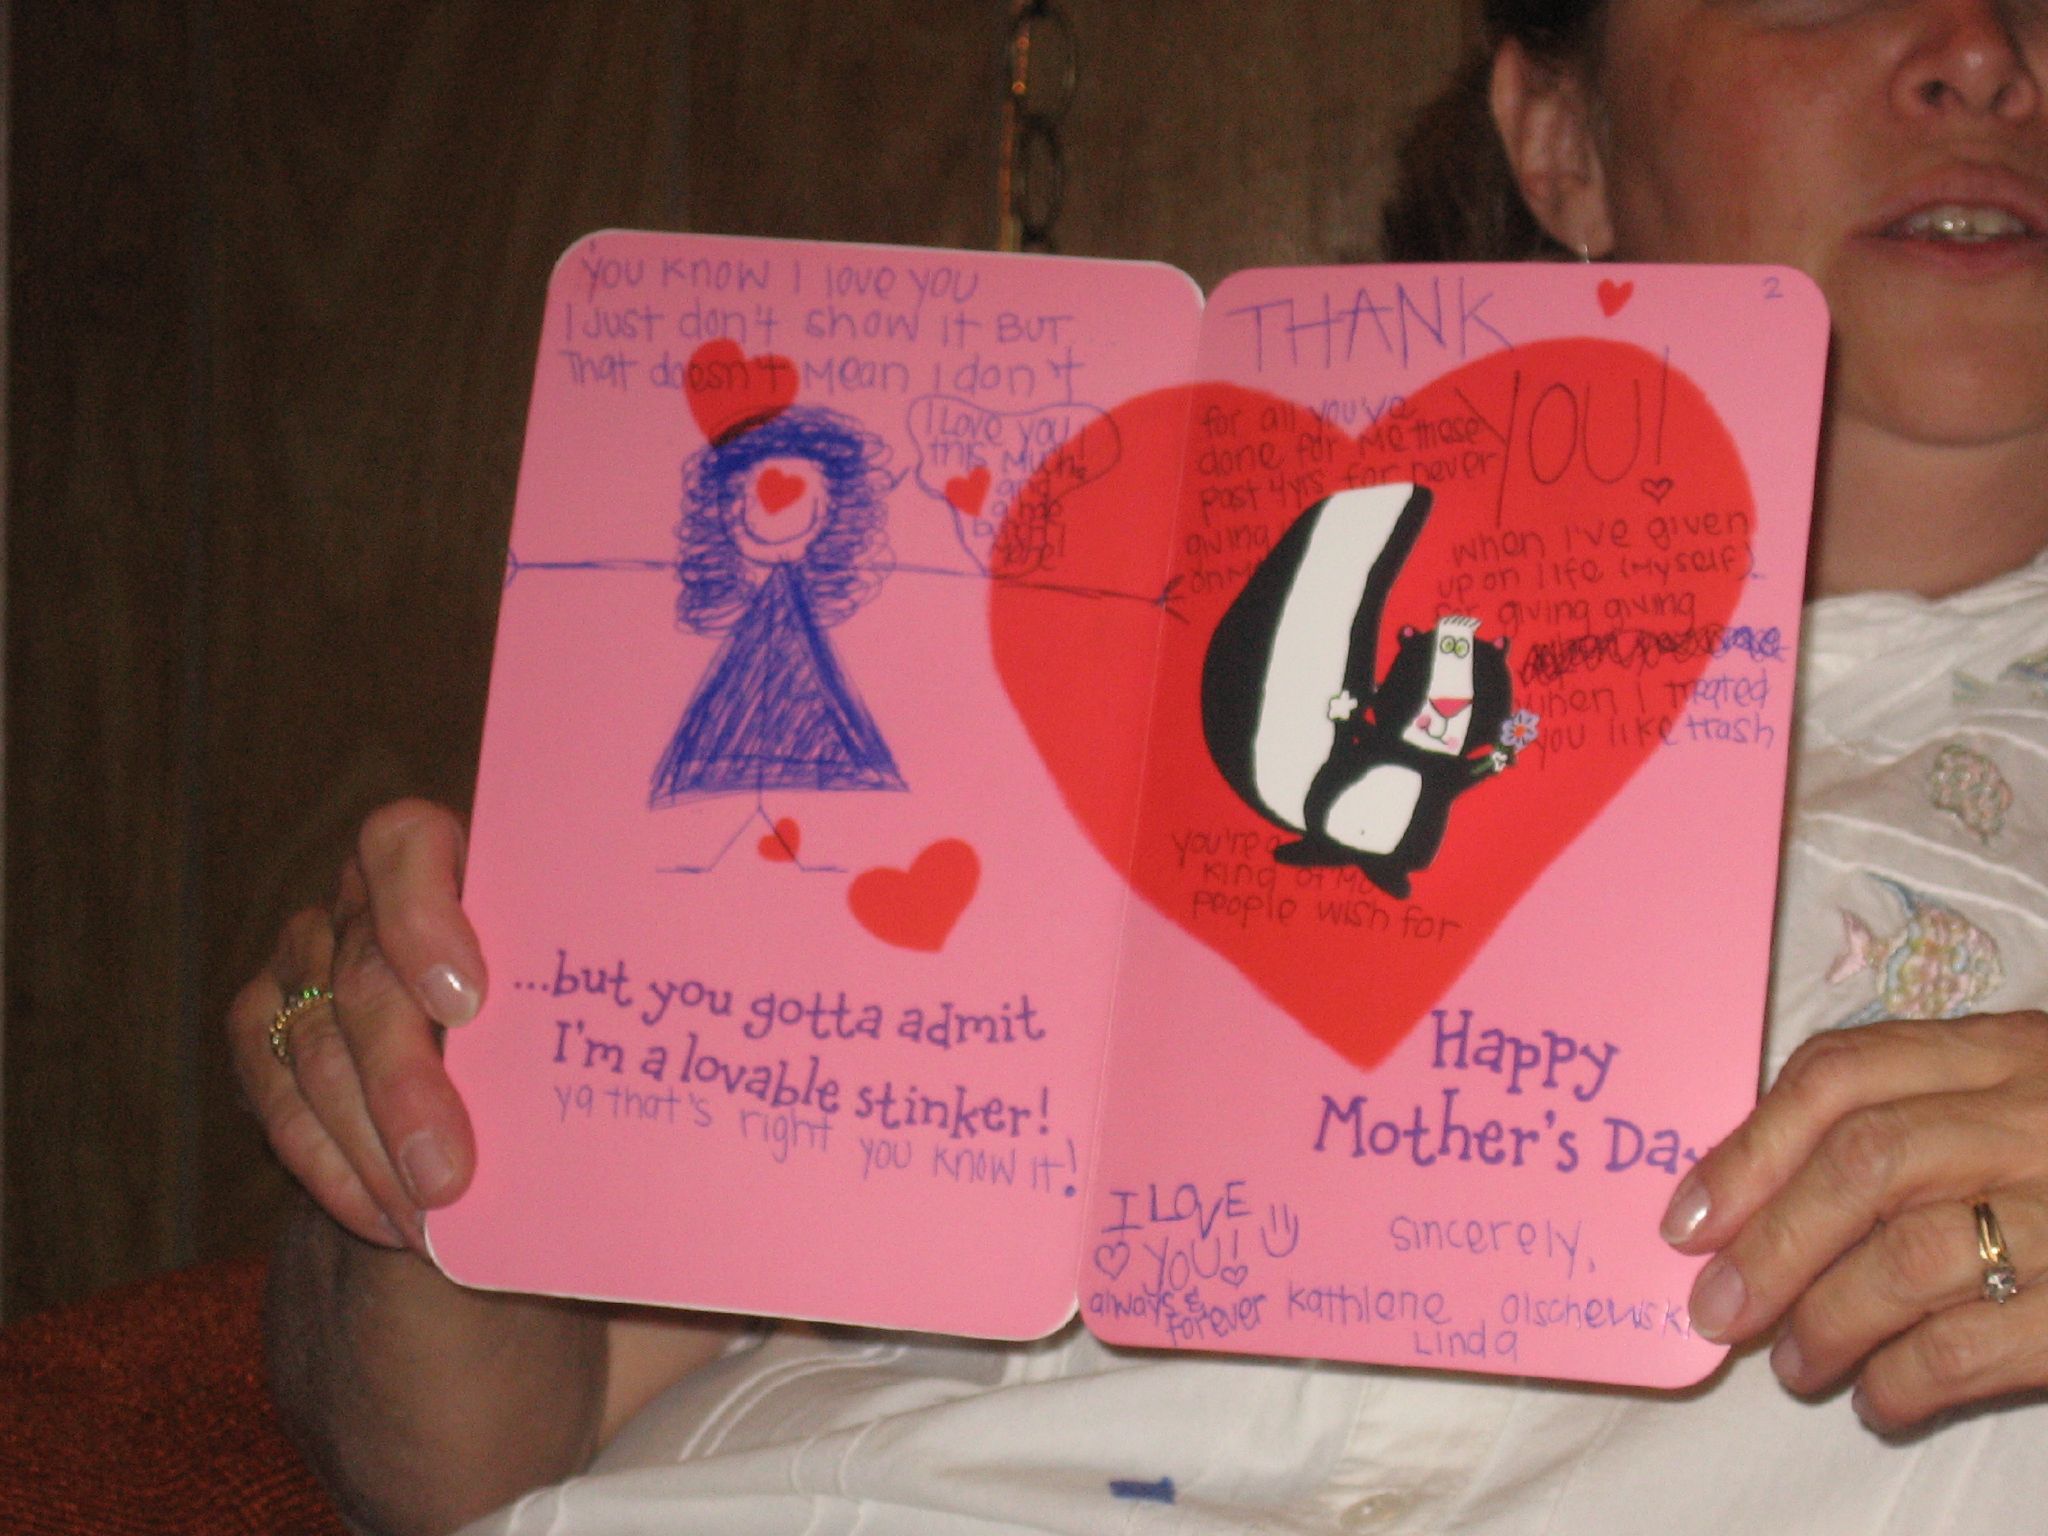 you know I love you
I Just don't show it BUT
That doesn't mean I don't
I Love you
this much!
and
...but you gotta admit
I'm a lovable stinker!
ya that's right you know it!
2
THANK
YOU!
for all you've
done for me these
past 4yrs for never
giving
on
when I've given
up on life (myself)
for giving giving
when I treated
you like trash
you're
kind of
people wish for
Happy
Mother's Day
I LOVE
YOU!
always &
forever
sincerely,
Kathlene olschewski
Linda